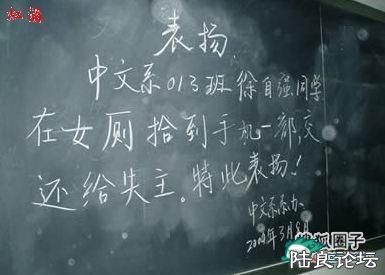 表扬
中文系013班徐自强同学
在女厕拾到手机一部,交
还给失主。特此表扬!
中文系系办.
搜狐圈子
陆良论坛